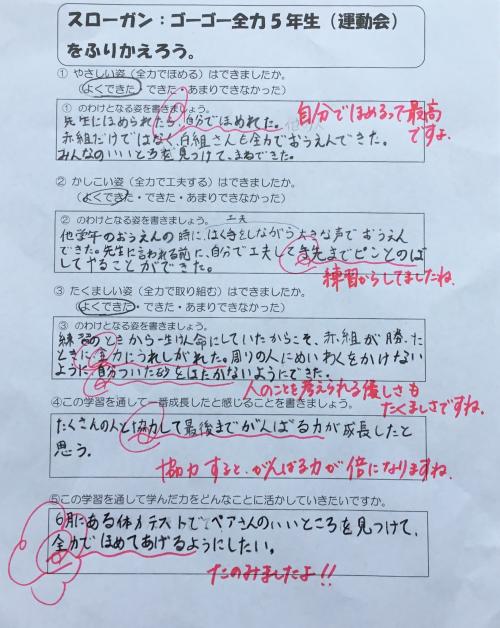 スローガン：ゴーゴー全力５年生（運動会）
をふりかえろう。
① やさしい姿（全力でほめる）はできましたか。
（よくできた・できた・あまりできなかった）
① のわけとなる姿を書きましょう。
先生にほめられたら、自分でほめれた。
赤組だけではなく、白組さんも全力でおうえんできた。
みんなのいいところを見つけて、まねできた。
自分でほめるって最高
ですよ。
② かしこい姿（全力で工夫する）はできましたか。
（よくできた・できた・あまりできなかった）
② のわけとなる姿を書きましょう。
工夫
他学年のおうえんの時に、はく手をしながら大きな声でおうえん
できた。先生に言われる前に、自分で工夫して手先までピンとのば
してやることができた。
練習からしてましたね。
③ たくましい姿（全力で取り組む）はできましたか。
（よくできた・できた・あまりできなかった）
③ のわけとなる姿を書きましょう。
練習のときから一生けん命にしていたからこそ、赤組が勝った
ときに全力でうれしがれた。周りの人にめいわくをかけない
ように、自分についた砂をはたかないようにできた。
人のことを考えられる優しさも
たくましさですね。
④この学習を通して一番成長したと感じることを書きましょう。
たくさんの人と協力して最後までがんばる力が成長したと
思う。
協力すると、がんばる力が倍になりますね。
⑤この学習を通して学んだ力をどんなことに活かしていきたいですか。
6月にある体力テストでペアさんのいいところを見つけて、
全力でほめてあげるようにしたい。
たのみましたよ!!